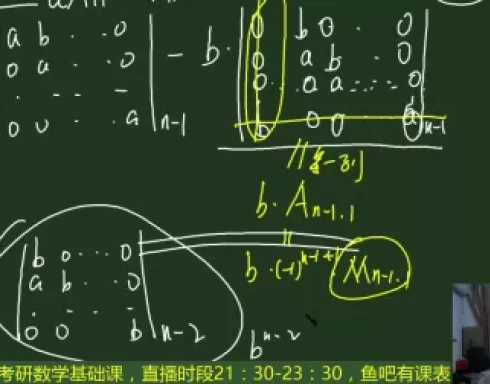 a b · · 0
0 a · · 0
· · - -
0 0 · · a
n-1
- b ·
0 b 0 · 0
0 a b · 0
0 · · 0 a - - - 0
0 0 0 a
n-1
b · A n-1.1
b · (-1)^(n-1+1) M n-1.1
b 0 · · · 0
a b · · 0
0 0 · b
n-2
b^(n-2)
考研数学基础课，直播时段21：30-23：30，鱼吧有课表